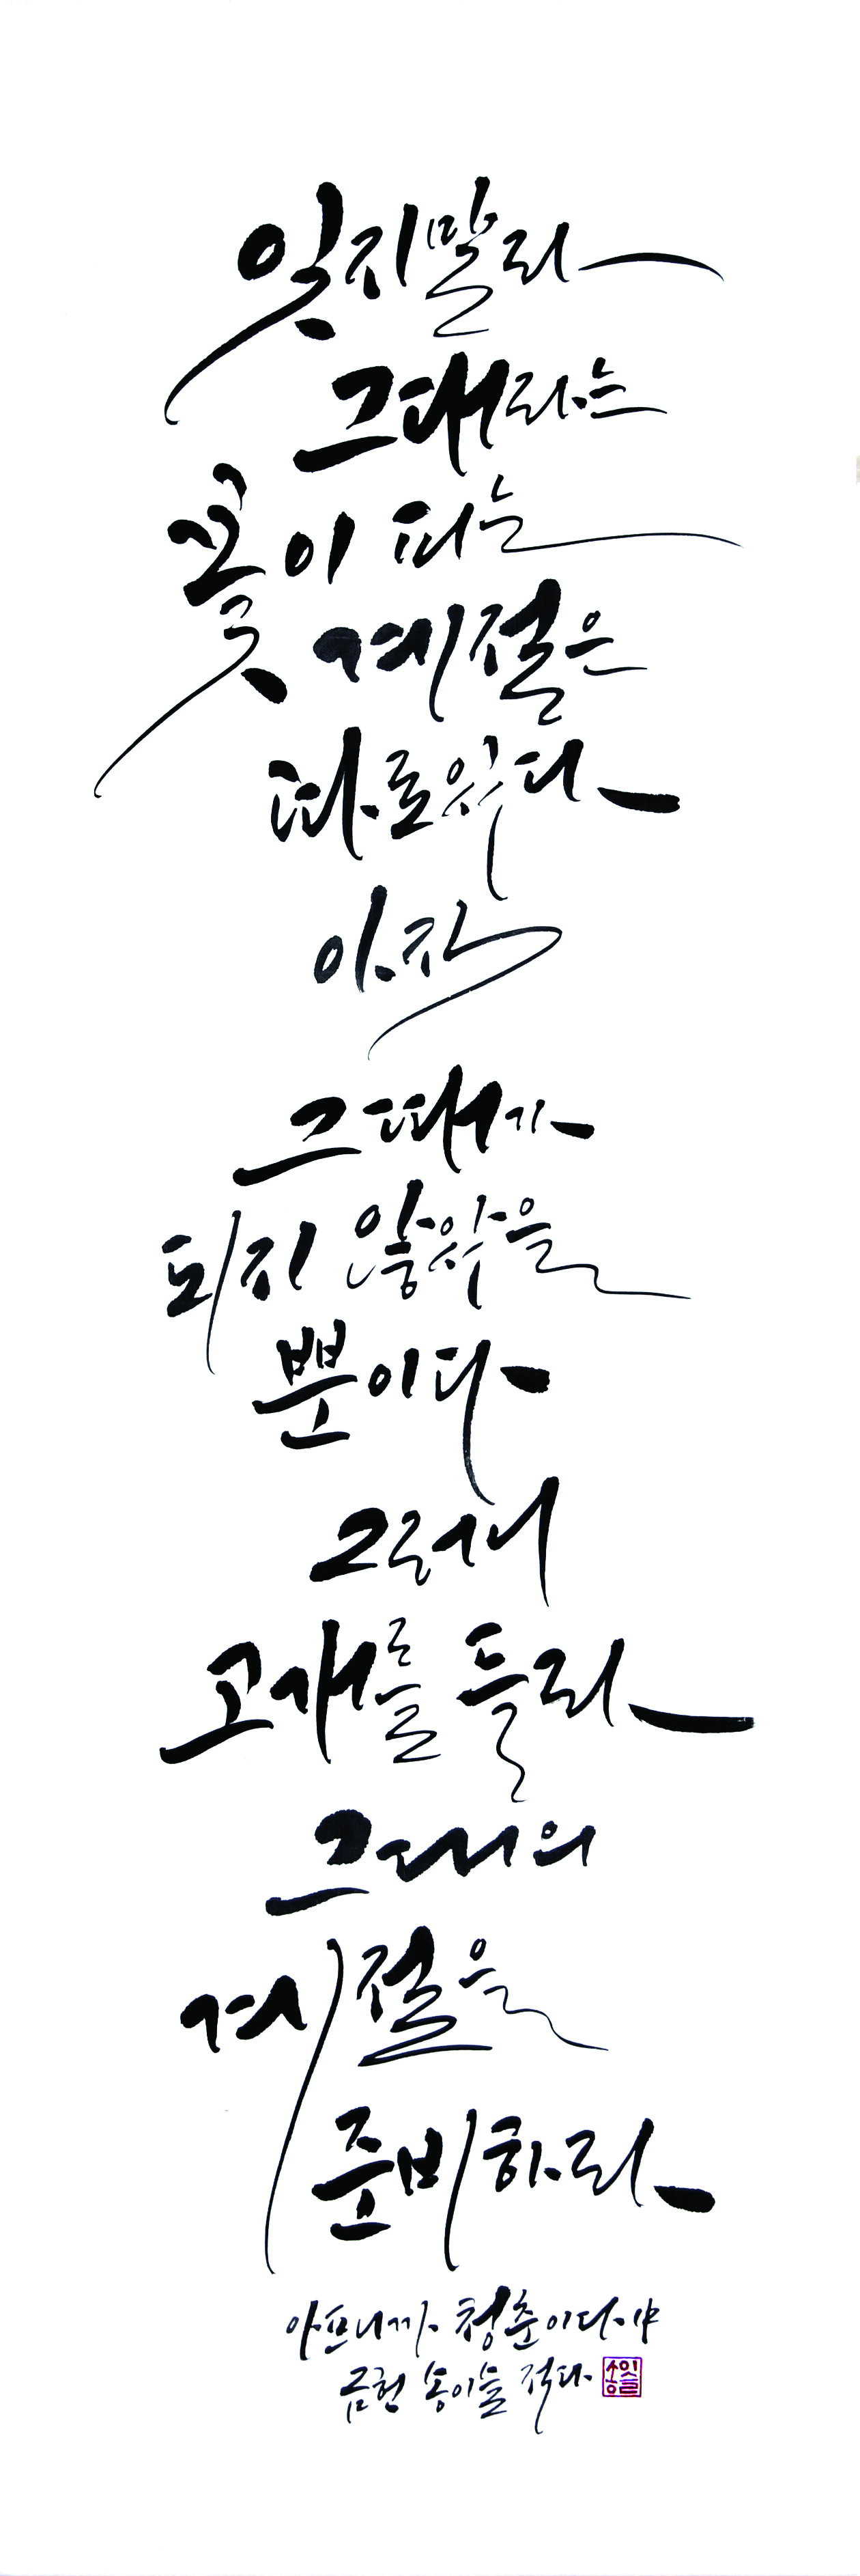 잊지말라
그대라는
꽃이 피는
계절은
따로있다
아직
그때가
되지 않았을
뿐이다
그러니
고개를 들라
그대의
계절을
준비하라
아프니까 청춘이다 中
금헌 송이슬 적다